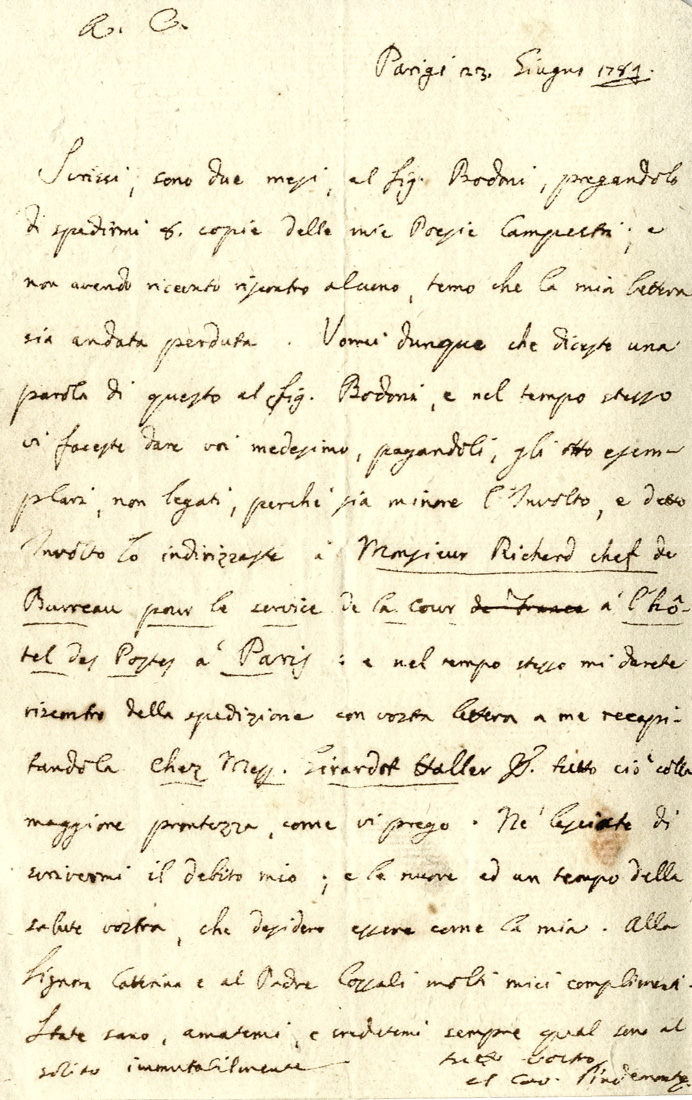 A. C.
Parigi 23. Giugno 1789.
Scrissi, sono due mesi, al Sig. Bodoni, pregandolo
di spedirmi 8. copie delle mie Poesie Campestri; e
non avendo ricevuto riscontro alcuno, temo che la mia lettera
sia andata perduta. Vorrei dunque che diceste una
parola di questo al Sig. Bodoni, e nel tempo stesso
vi faceste dare voi medesimo, pagandoli, gli otto esem-
plari, non legati, perché sia minore l'Involto, e detto
Involto lo indirizzaste à Monsieur Richard chef de
Burreau pour le service de la Cour de France à l'hô-
tel des Postes à Paris: e nel tempo stesso mi darete
riscontro della spedizione con vostra lettera a me recapi-
tandola Chez Mess. Girardot Haller tutto ciò colla
maggiore prontezza, come vi prego. Né lasciate di
scrivermi il debito mio; e le nuove ad un tempo della
salute vostra, che desidero essere come la mia. Alla
Signora Catterina e al Padre Cossali molti miei complimenti.
State sano, amatemi, e credetemi sempre qual sono al
solito immutabilmente
tutto vostro
el Cav. Pindemonte